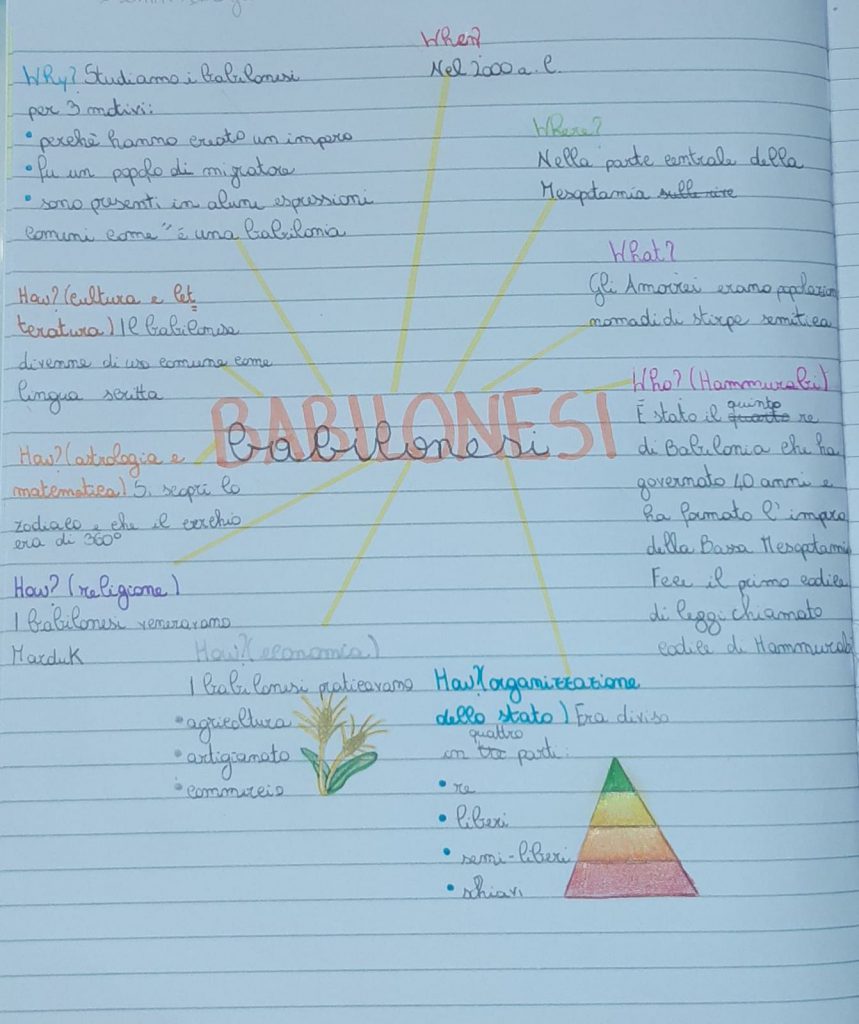 When?
Nel 2000 a.C.
Why? Studiamo i babilonesi
per 3 motivi:
• perchè hanno creato un impero
• fu un popolo di migratore
• sono presenti in alune espressioni
comuni come " è una babilonia
Where?
Nella parte centrale della
Mesopotamia sulle rive
What?
Gli Amorrei erano popolazion
nomadi di stirpe semitica
How? (cultura e let
teratura) Il babilonese
divenne di uso comune come
lingua scritta
BABILONESI
babilonesi
Who? (Hammurabi)
È stato il quarto quinto re
di Babilonia che ha
governato 40 anni e
ha formato l'impro
della Bassa Mesopotami
Fece il primo codice
di leggi chiamato
codice di Hammurab
How? (astrologia e
matematica) S. scoprì lo
zodiaco e che il cerchio
era di 360°
How? (religione)
I babilonesi veneravano
Marduk
How? (economia)
I babilonesi praticavano
• agricoltura
• artigianato
• commercio
How? (organizzazione
dello stato) Era diviso
quattro
in tre parti:
• re
• liberi
• semi-liberi
• schiavi